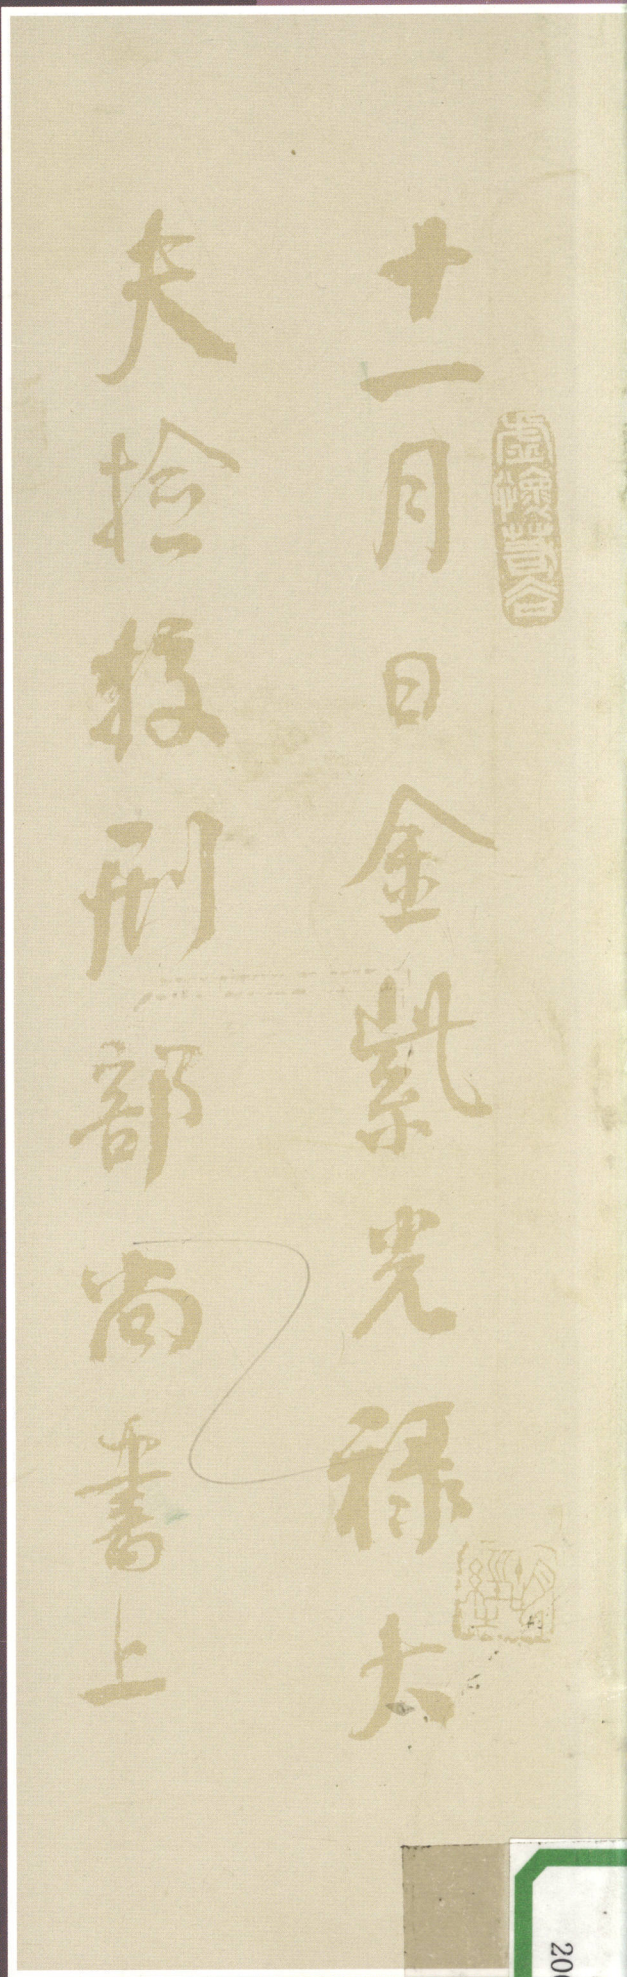 十一月日金紫光禄大
夫捡挍刑部尚書上
20